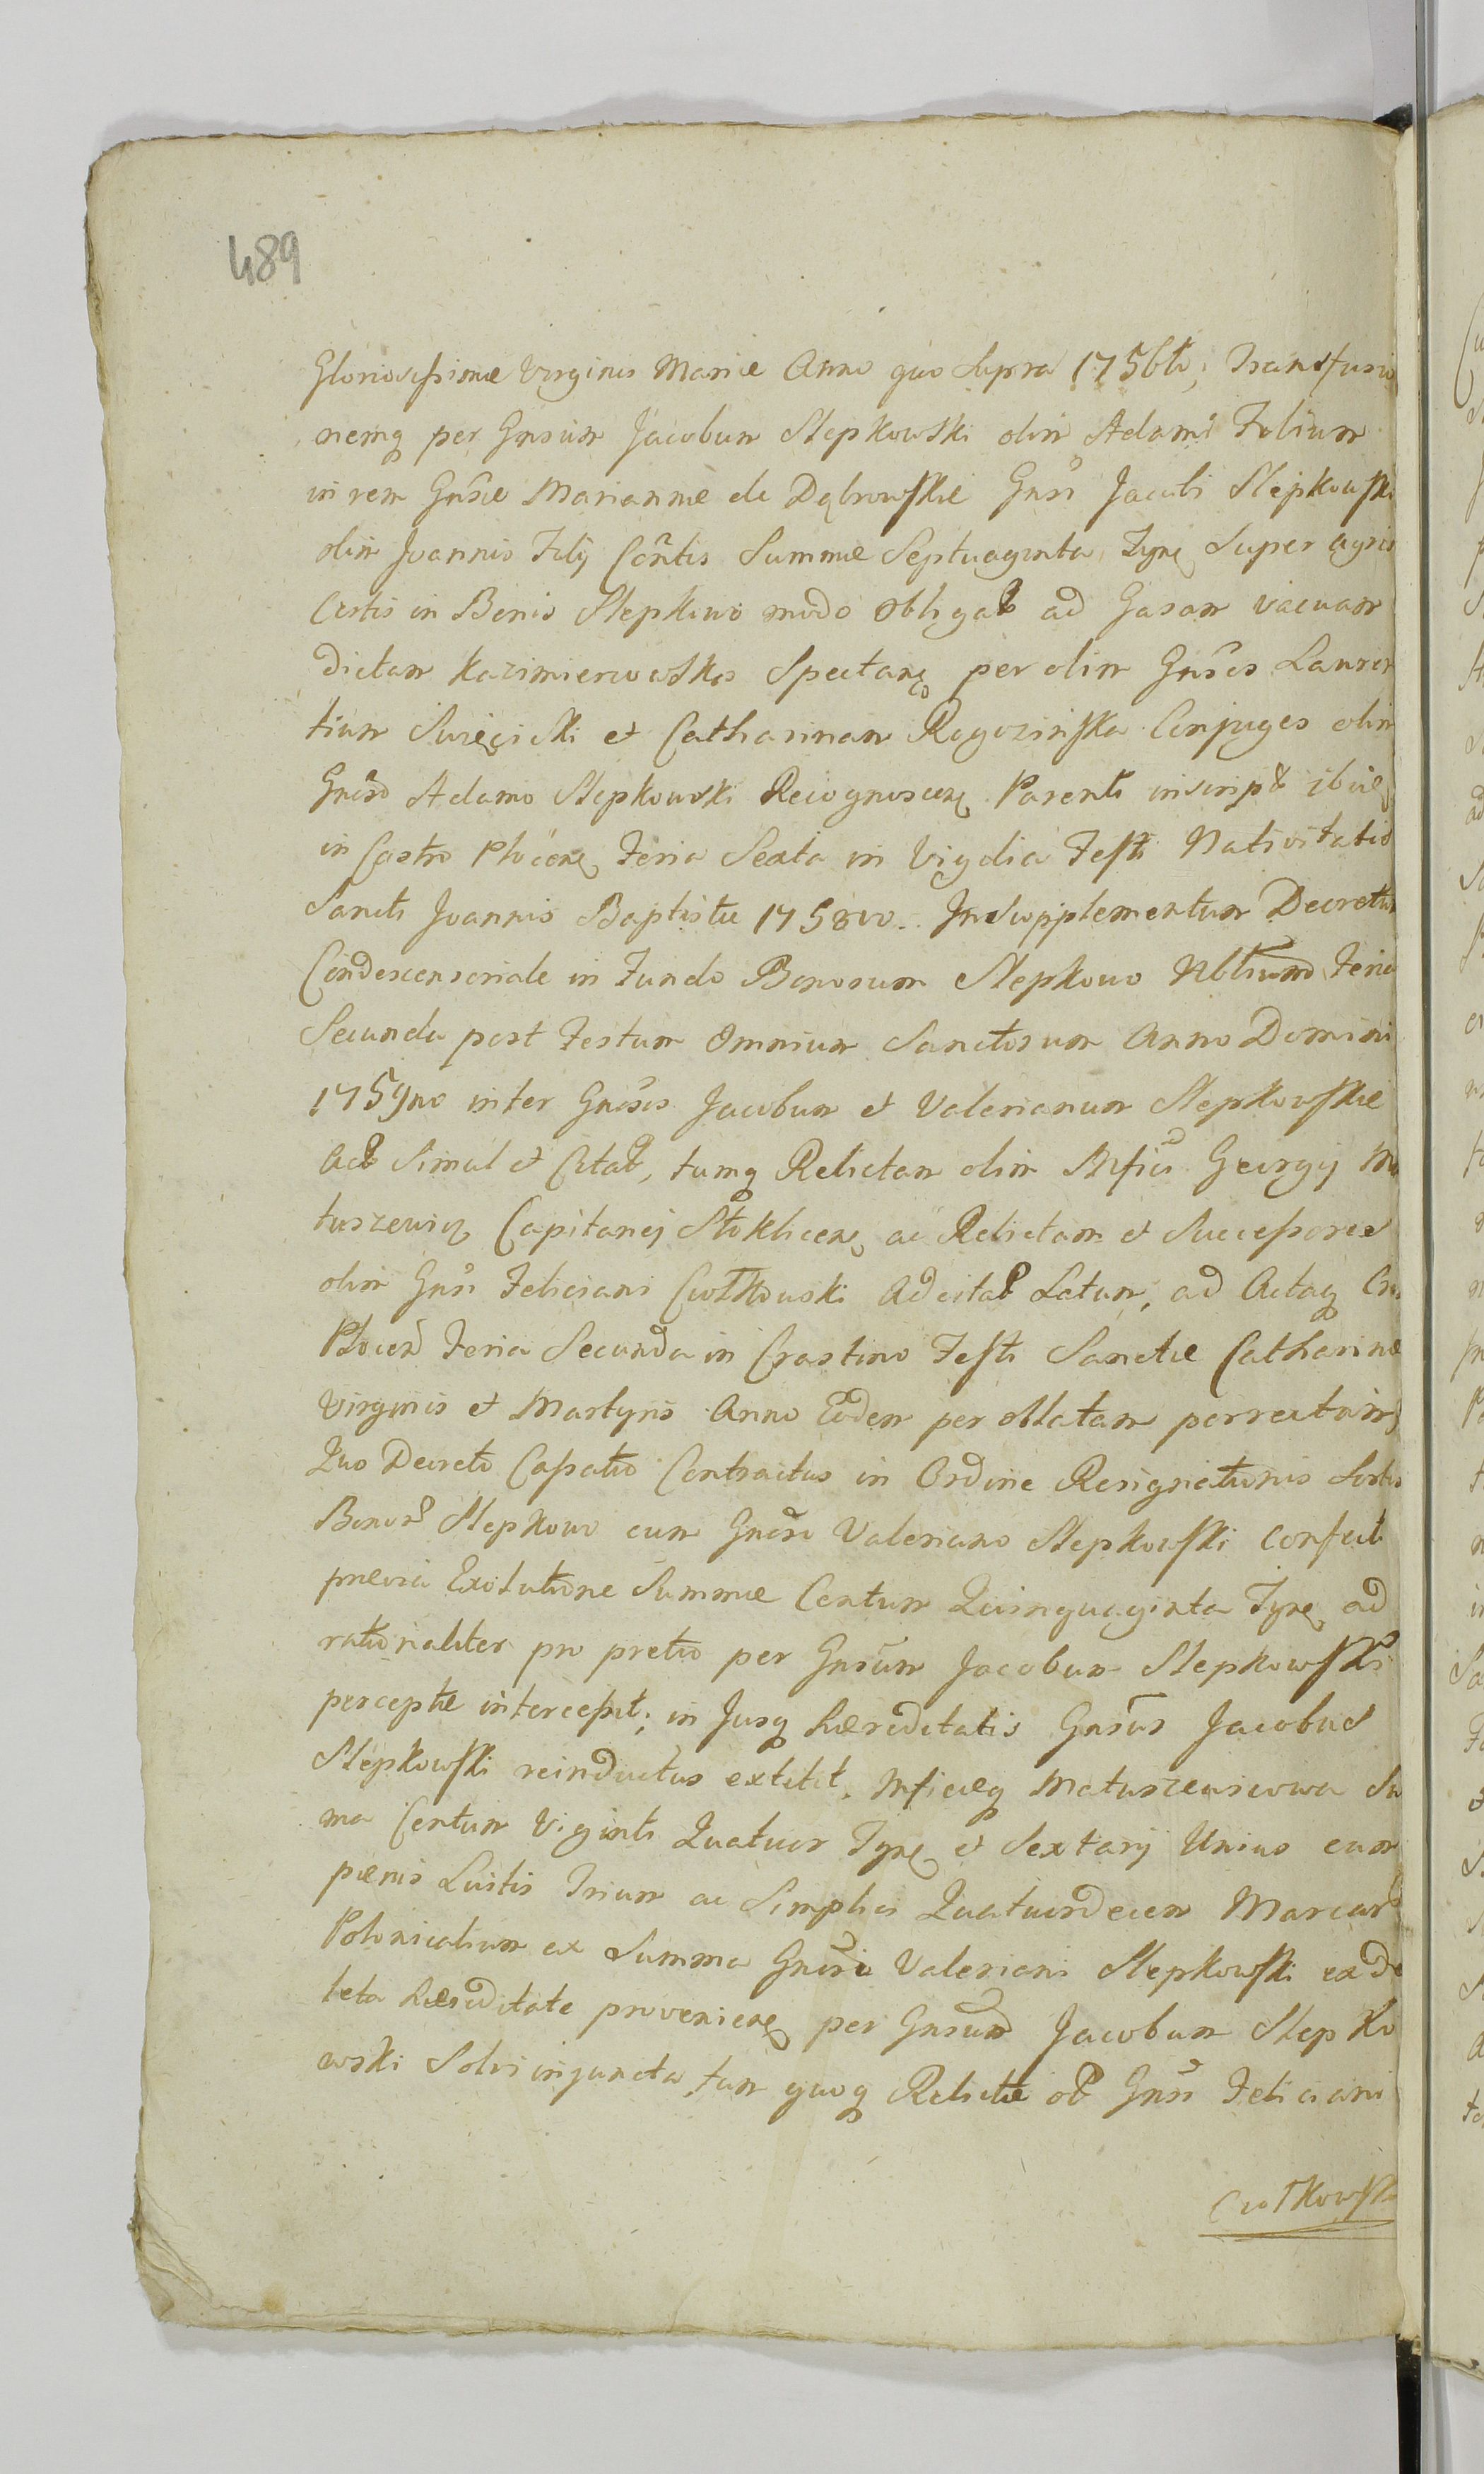 489
Gloriosissimæ Virginis Mariæ Anno quo Supra 1756to; Transfusio
nemq per Gnsum Jacobum Slepkowski olim Adami Filium
in rem Gnsæ Mariannæ de Dąbrowskie Gnsi Jacobi Slepkowski
olim Joannis Filij Contis Summæ Septuaginta Tynf Super agris
Certis in Bonis Slepkowo modo obligat ad Gasam vacuam
dictam Kazimierzowska Spectan per olim Gnsos Lauren
tium Swięcicki et Catharinam Rogozinska Conjuges olim
Gnoso Adamo Slepkowski Recognoscen Parenti inscript ibid
in Castro Plocen Feria Sexta in Vigilia Festi Nativitatis
Sancti Joannis Baptistæ 1758vo. In Supplementum Decretum
Condescensoriale in Fundo Bonorum Slepkowo Feria
Secunda post Festum Omnium Sanctorum Anno Domini
1759no inter Gnosos Jacobum et Valerianum Slepkowskie
Act Simul et Citat, tumq Relictam olim Mfici Georgij Ma
tuszewicz Capitanej Stoklicen ac Relictam et Successores
olim Gnsi Feliciani Cwtkowski Adcitat Latum, ad Actaq
Plocen Feria Secunda in Crastino Festi Sanctæ Catharinæ
Virginis et Martyris Anno Eodem per oblatam porrectum
Quo Decreto Cassatio Contractus in Ordine Resignationis Sortis
Bonor Slepkowo cum Gnoso Valeriano Slepkowski confect
prævia Exolutione Summæ Centum Quinquaginta Tynf ad
rationaliter pro pretio per Gnsum Jacobum Slepkowski
perceptæ intercessit; in Jusq hæreditatis Gnsus Jacobus
Slepkowski reinductus extitit. Mficæq Matuszewicowa Su
ma Centum Viginti Quatuor Tynf et Sextarij Unius cum
pænis Luitis Trium ac Simplici Quatuordecem Marcar
Polonicalium ex Summa Gnosi Valeriani Slepkowski ex de
leta hæreditate provenien per Gnsum Jacobum Slepko
wski Solvi injuncta, tum quoq Relictæ ol Gnsi Feliciani
Cwtkowski